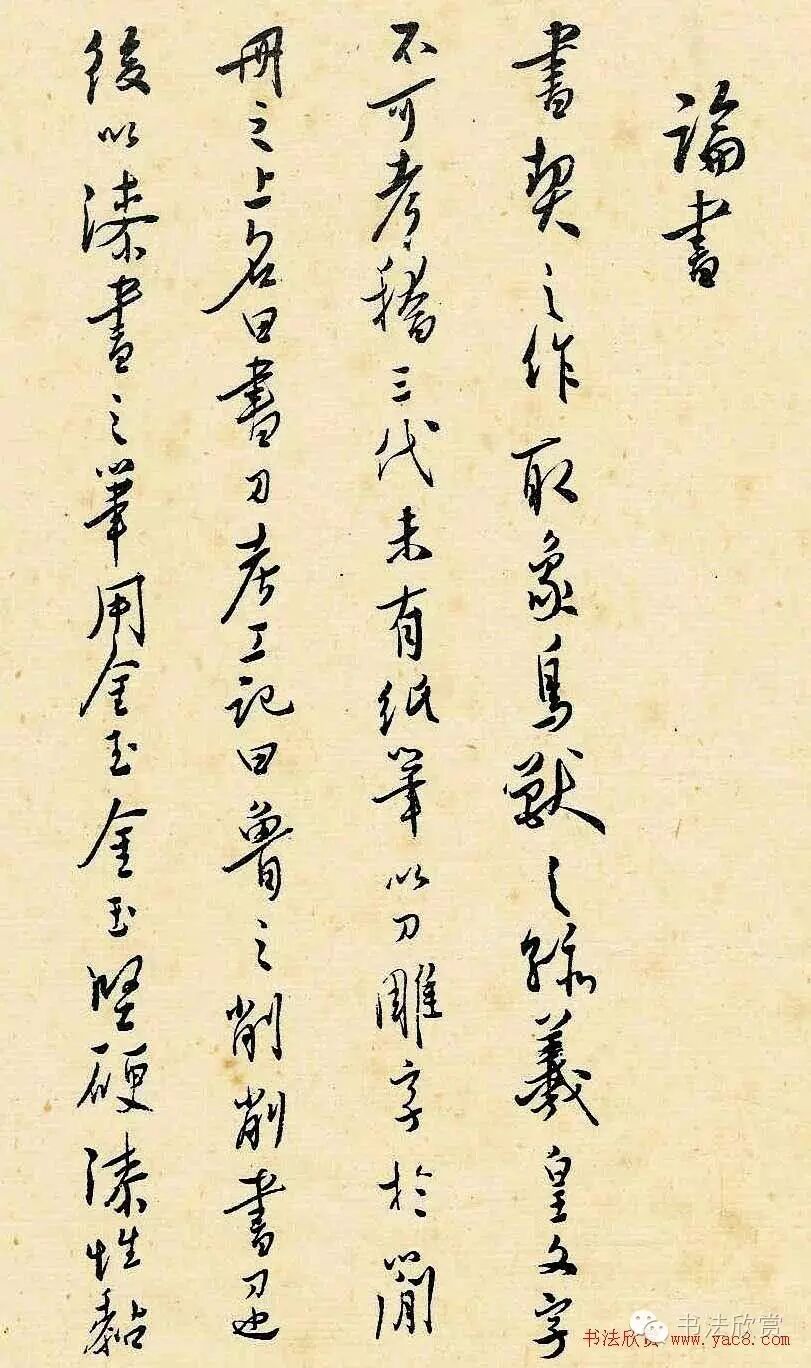 論書
書契之作取象鳥獸之跡羲皇文字
不可考稽三代未有紙筆以刀雕字於簡
冊之上名曰書刀考工記曰魯之削削書刀也
後以漆書之筆用金玉金玉堅硬漆性黏
书法欣赏
书法欣赏 www.yac8.com